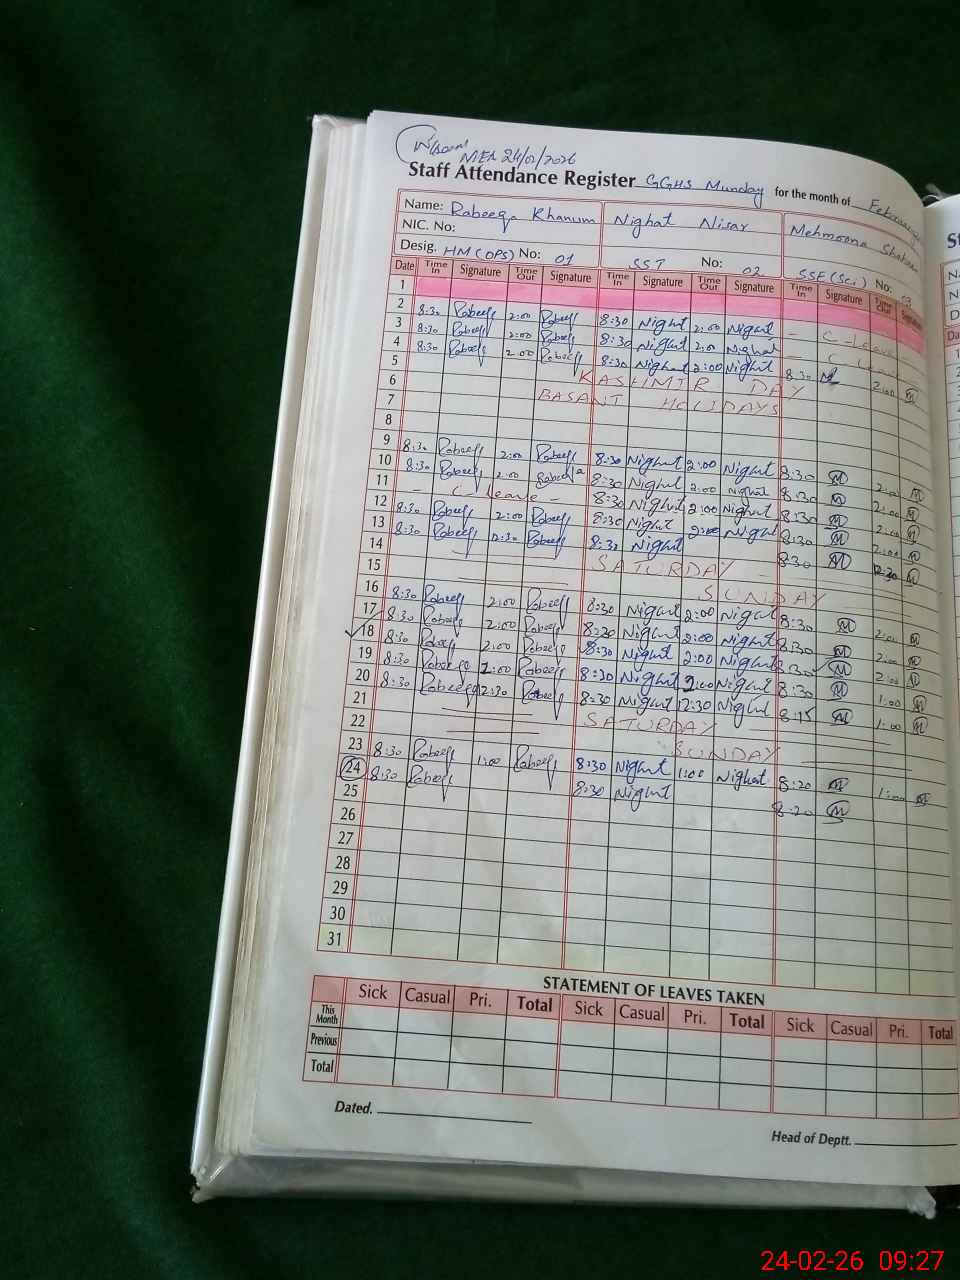 MEA 24/02/2026
Staff Attendance Register GGHS Munday for the month of February
Name: Rabeeqa Khanum Nighat Nisar Mehmoona Shaheen
NIC. No:
Desig. HM (OPS) No: 01 SST No: 02 SSE (Sci) No: 03
Date Time In Signature Time Out Signature Time In Signature Time Out Signature Time In Signature Time Out Signature
1
2 8:30 Rabeeq 2:00 Rabeeq 8:30 Nighat 2:00 Nighat - C-Leave -
3 8:30 Rabeeq 2:00 Rabeeq 8:30 Nighat 2:00 Nighat - C Leave -
4 8:30 Rabeeq 2:00 Rabeeq 8:30 Nighat 2:00 Nighat 8:30 M 2:00 M
5 KASHMIR DAY
6 BASANT HOLIDAYS
7
8
9 8:30 Rabeeq 2:00 Rabeeq 8:30 Nighat 2:00 Nighat 8:30 M 2:00 M
10 8:30 Rabeeq 2:00 Rabeeqa 8:30 Nighat 2:00 Nighat 8:30 M 2:00 M
11 - C-Leave - 8:30 Nighat 2:00 Nighat 8:30 M 2:00 M
12 8:30 Rabeeq 2:00 Rabeeq 8:30 Nighat 2:00 Nighat 8:30 M 2:00 M
13 8:30 Rabeeq 12:30 Rabeeq 8:30 Nighat 8:30 M 12:30 M
14 SATURDAY
15 SUNDAY
16 8:30 Rabeeq 2:00 Rabeeq 8:30 Nighat 2:00 Nighat 8:30 M 2:00 M
17 8:30 Rabeeq 2:00 Rabeeq 8:30 Nighat 2:00 Nighat 8:30 M 2:00 M
18 8:30 Rabeeq 2:00 Rabeeq 8:30 Nighat 2:00 Nighat 8:30 M 2:00 M
19 8:30 Rabeeq 1:00 Rabeeq 8:30 Nighat Nighat 8:30 M 1:00 M
20 8:30 Rabeeq 12:30 Rabeeq 8:30 Nighat 12:30 Nighat 8:15 M 1:00 M
21 SATURDAY
22 SUNDAY
23 8:30 Rabeeq 1:00 Rabeeq 8:30 Nighat 1:00 Nighat 8:20 M 1:00 M
24 8:30 Rabeeq 8:30 Nighat 8:20 M
25
26
27
28
29
30
31
STATEMENT OF LEAVES TAKEN
Sick Casual Pri. Total Sick Casual Pri. Total Sick Casual Pri. Total
This Month
Previous
Total
Dated.
Head of Deptt.
24-02-26 09:27